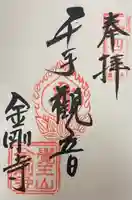 奉拝
千手觀音
金剛寺